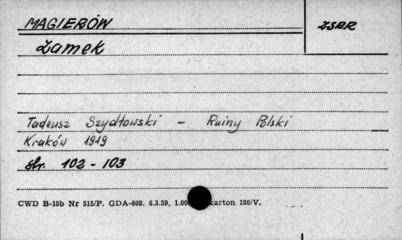 MAGIERÓW
ZSRR
Zamek
Tadeusz Szydłowski - Ruiny Polski
Kraków 1919
str. 102 - 103
CWD B-15b Nr 515/P. GDA-809. 6.3.59. 1.00 karton 180/V.